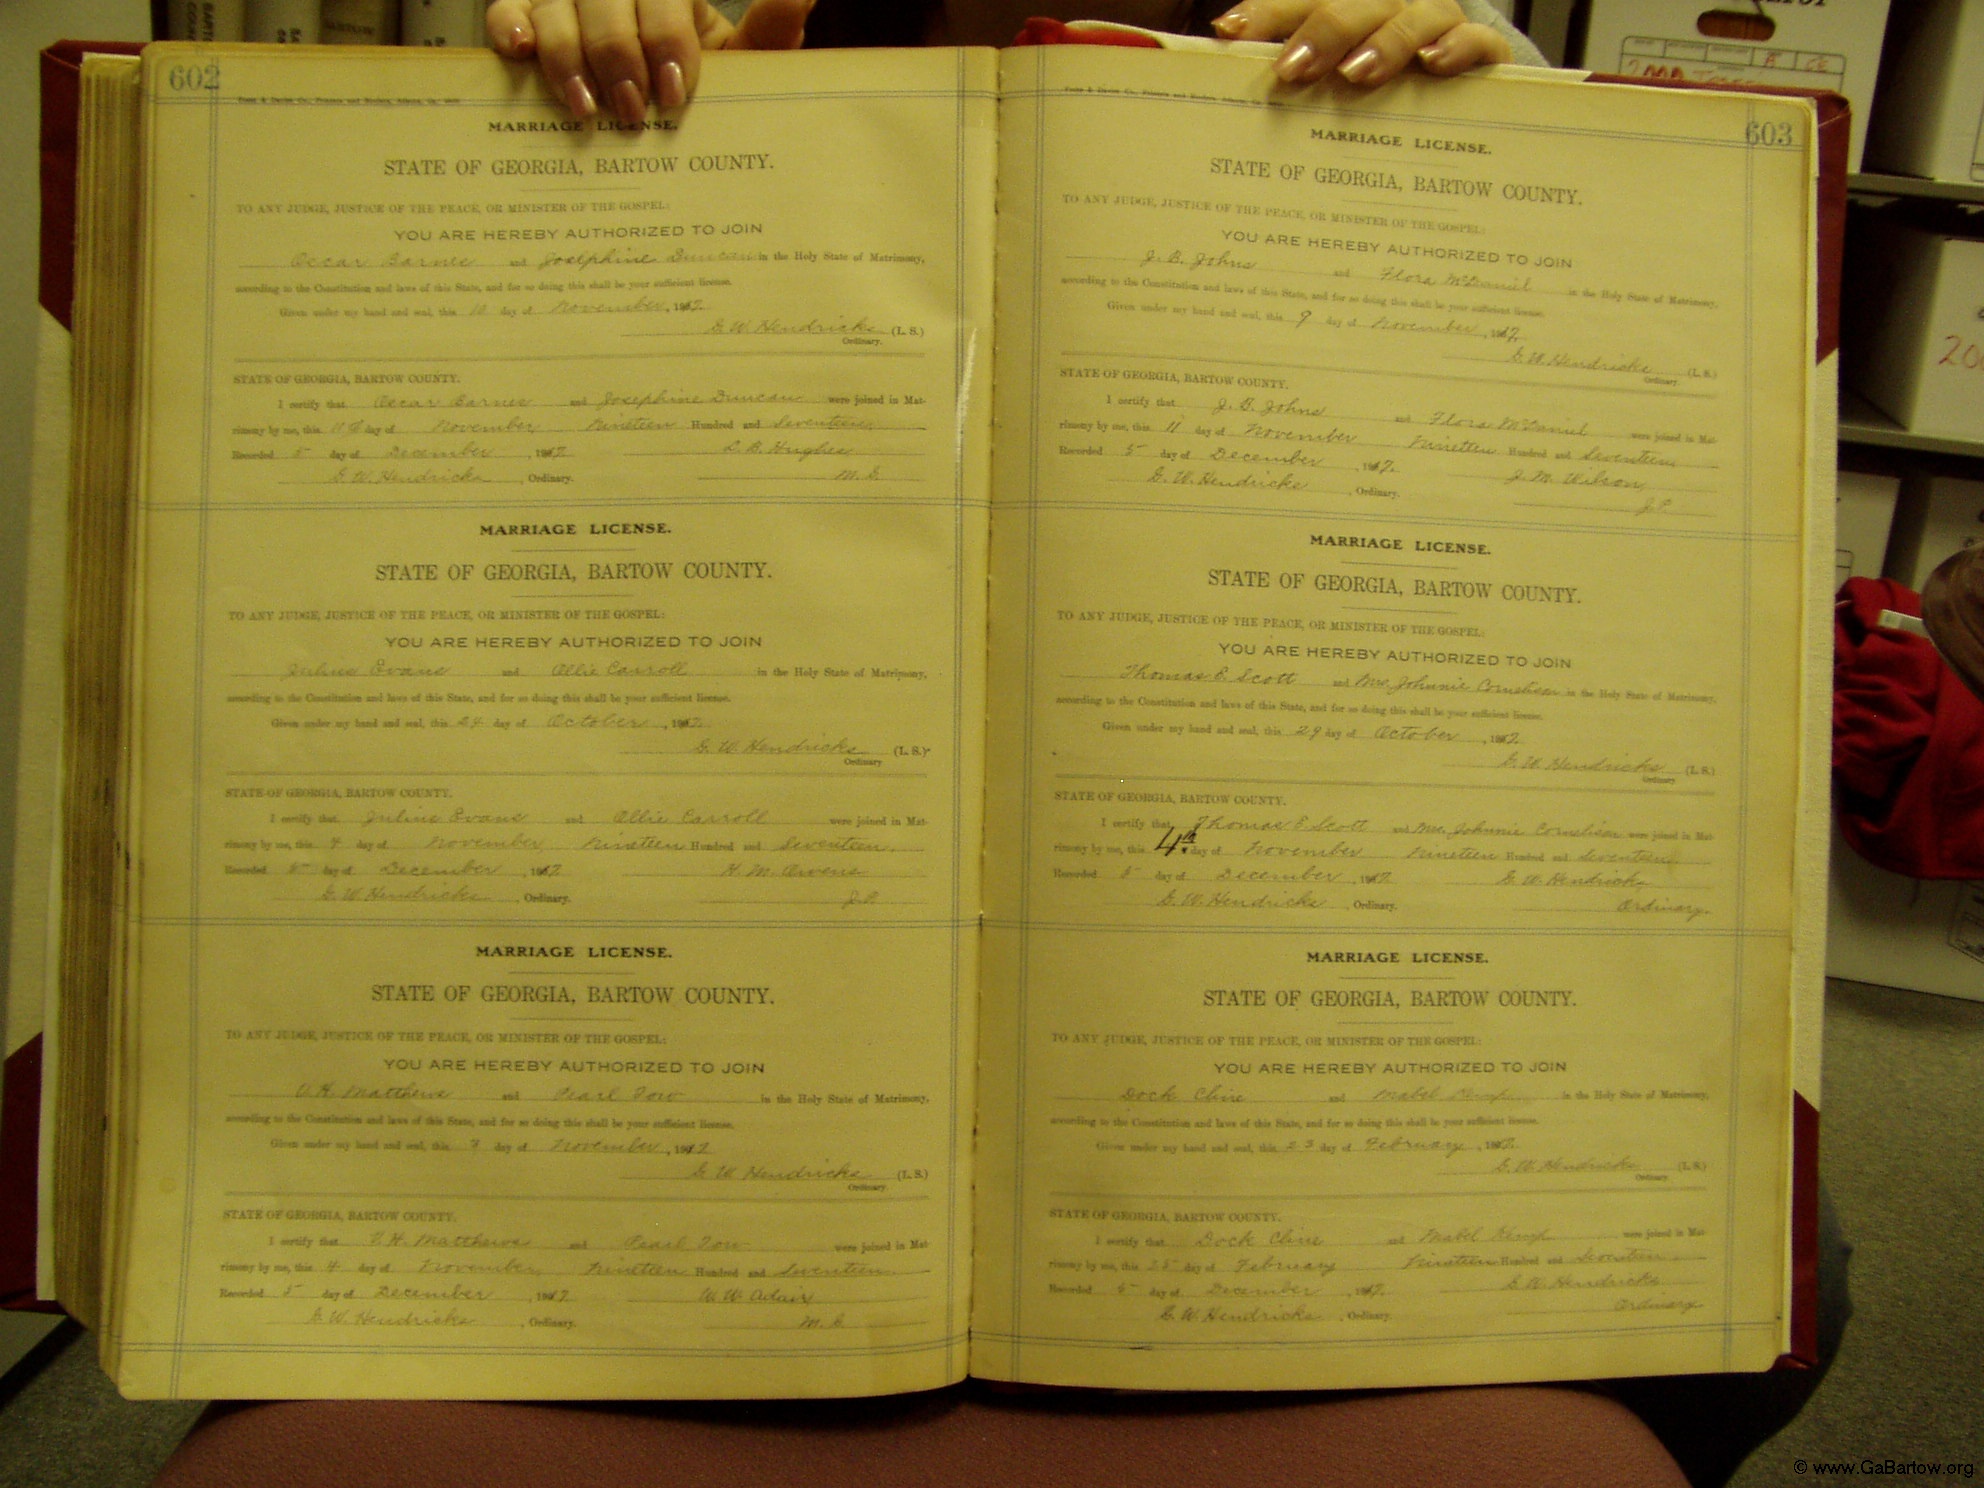 602
MARRIAGE LICENSE.
STATE OF GEORGIA, BARTOW COUNTY.
TO ANY JUDGE, JUSTICE OF THE PEACE, OR MINISTER OF THE GOSPEL:
YOU ARE HEREBY AUTHORIZED TO JOIN
Oscar Barnes and Josephine Duncan in the Holy State of Matrimony,
according to the Constitution and laws of this State, and for so doing this shall be your sufficient license.
Given under my hand and seal, this 10 day of November, 1917.
G. W. Hendricks (L. S.)
Ordinary.
STATE OF GEORGIA, BARTOW COUNTY.
I certify that Oscar Barnes and Josephine Duncan were joined in Mat-
rimony by me, this day of November Nineteen Hundred and Seventeen.
Recorded 5 day of December, 1917. Hughes
G. W. Hendricks, Ordinary. M. G.
MARRIAGE LICENSE.
STATE OF GEORGIA, BARTOW COUNTY.
TO ANY JUDGE, JUSTICE OF THE PEACE, OR MINISTER OF THE GOSPEL:
YOU ARE HEREBY AUTHORIZED TO JOIN
Julius Evans and Ollie Carroll in the Holy State of Matrimony,
according to the Constitution and laws of this State, and for so doing this shall be your sufficient license.
Given under my hand and seal, this day of October, 1917.
G. W. Hendricks (L. S.)
Ordinary
STATE OF GEORGIA, BARTOW COUNTY.
I certify that Julius Evans and Ollie Carroll were joined in Mat-
rimony by me, this 4 day of November Nineteen Hundred and Seventeen.
Recorded 5 day of December, 1917. H. M. Owens
G. W. Hendricks, Ordinary. J. P.
MARRIAGE LICENSE.
STATE OF GEORGIA, BARTOW COUNTY.
TO ANY JUDGE, JUSTICE OF THE PEACE, OR MINISTER OF THE GOSPEL:
YOU ARE HEREBY AUTHORIZED TO JOIN
H. Matthews and Pearl Tow in the Holy State of Matrimony,
according to the Constitution and laws of this State, and for so doing this shall be your sufficient license.
Given under my hand and seal, this 3 day of November, 1917
G. W. Hendricks (L. S.)
Ordinary.
STATE OF GEORGIA, BARTOW COUNTY.
I certify that H. Matthews and Pearl Tow were joined in Mat-
rimony by me, this 4 day of November Nineteen Hundred and Seventeen
Recorded 5 day of December, 1917 W. W. Adair
G. W. Hendricks, Ordinary. M. G.
603
MARRIAGE LICENSE.
STATE OF GEORGIA, BARTOW COUNTY.
TO ANY JUDGE, JUSTICE OF THE PEACE, OR MINISTER OF THE GOSPEL:
YOU ARE HEREBY AUTHORIZED TO JOIN
J. B. Johns and Flora McDaniel in the Holy State of Matrimony,
according to the Constitution and laws of this State, and for so doing this shall be your sufficient license.
Given under my hand and seal, this 9 day of November, 1917.
G. W. Hendricks (L. S.)
Ordinary
STATE OF GEORGIA, BARTOW COUNTY.
I certify that J. B. Johns and Flora McDaniel were joined in Mat-
rimony by me, this 11 day of November Nineteen Hundred and Seventeen
Recorded 5 day of December, 1917. J. M. Wilson,
G. W. Hendricks, Ordinary. J. P.
MARRIAGE LICENSE.
STATE OF GEORGIA, BARTOW COUNTY.
TO ANY JUDGE, JUSTICE OF THE PEACE, OR MINISTER OF THE GOSPEL:
YOU ARE HEREBY AUTHORIZED TO JOIN
Thomas E Scott and Mrs. Johnnie Cornelison in the Holy State of Matrimony,
according to the Constitution and laws of this State, and for so doing this shall be your sufficient license.
Given under my hand and seal, this 29 day of October, 1917.
G. W. Hendricks (L. S.)
Ordinary
STATE OF GEORGIA, BARTOW COUNTY.
I certify that Thomas E Scott and Mrs. Johnnie Cornelison were joined in Mat-
rimony by me, this 4th day of November Nineteen Hundred and Seventeen
Recorded 5 day of December, 1917. G. W. Hendricks
G. W. Hendricks, Ordinary. Ordinary.
MARRIAGE LICENSE.
STATE OF GEORGIA, BARTOW COUNTY.
TO ANY JUDGE, JUSTICE OF THE PEACE, OR MINISTER OF THE GOSPEL:
YOU ARE HEREBY AUTHORIZED TO JOIN
Dock Cline and Mabel Kemp in the Holy State of Matrimony,
according to the Constitution and laws of this State, and for so doing this shall be your sufficient license.
Given under my hand and seal, this 23 day of February, 1917.
G. W. Hendricks (L. S.)
Ordinary.
STATE OF GEORGIA, BARTOW COUNTY.
I certify that Dock Cline and Mabel Kemp were joined in Mat-
rimony by me, this 25 day of February Nineteen Hundred and Seventeen
Recorded 5 day of December, 1917. G. W. Hendricks
G. W. Hendricks, Ordinary. Ordinary
© www.GaBartow.org